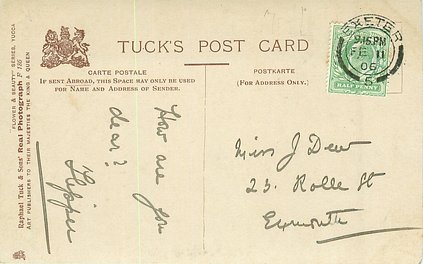 TUCK'S POST CARD
CARTE POSTALE
IF SENT ABROAD, THIS SPACE MAY ONLY BE USED
FOR NAME AND ADDRESS OF SENDER.
POSTKARTE
(FOR ADDRESS ONLY.)
EXETER
9.15 PM
FE 11
05
HALF PENNY
Raphael Tuck & Sons' Real Photograph P 135 "FLOWER & BEAUTY" SERIES. YUCCA
ART PUBLISHERS TO THEIR MAJESTIES THE KING & QUEEN
How are you
dear?
Miss J Dew
23. Rolle St
Exmouth